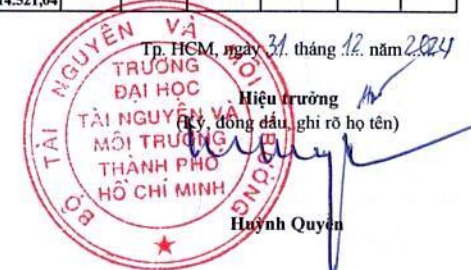 14.521,04
Tp. HCM, ngày 31 tháng 12 năm 2024
Hiệu trưởng
(Ký, đóng dấu, ghi rõ họ tên)
Huỳnh Quyền
BỘ TÀI NGUYÊN VÀ MÔI TRƯỜNG
TRƯỜNG
ĐẠI HỌC
TÀI NGUYÊN VÀ
MÔI TRƯỜNG
THÀNH PHỐ
HỒ CHÍ MINH